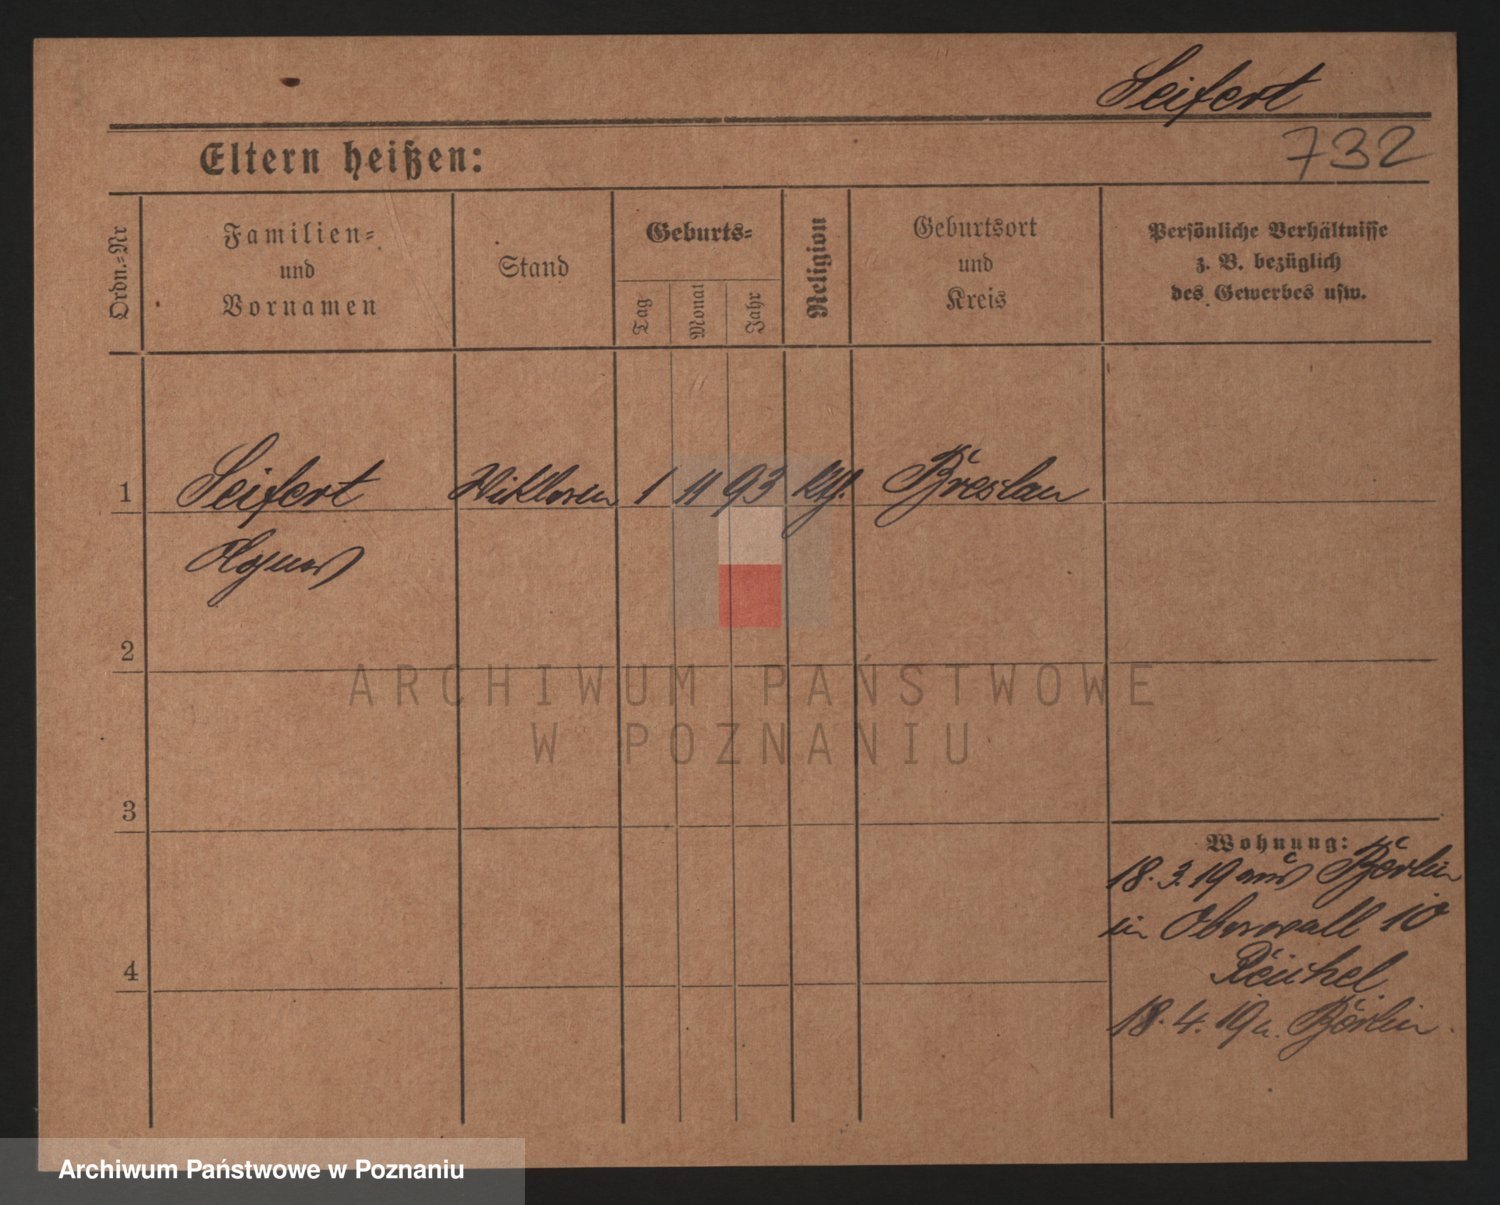 Seifert
732
Eltern heißen:
Ordn.-Nr
Familien-
und
Vornamen
Stand
Geburts-
Tag
Monat
Jahr
Religion
Geburtsort
und
Kreis
Persönliche Verhältnisse
z. B. bezüglich
des Gewerbes usw.
1 Seifert 1 11 93 kth. Breslau
Agnes
2
ARCHIWUM PAŃSTWOWE
W POZNANIU
3
Wohnung:
18.3.19 aus Berlin
in Oberwall 10
4
18.4.19 n. Berlin.
Archiwum Państwowe w Poznaniu